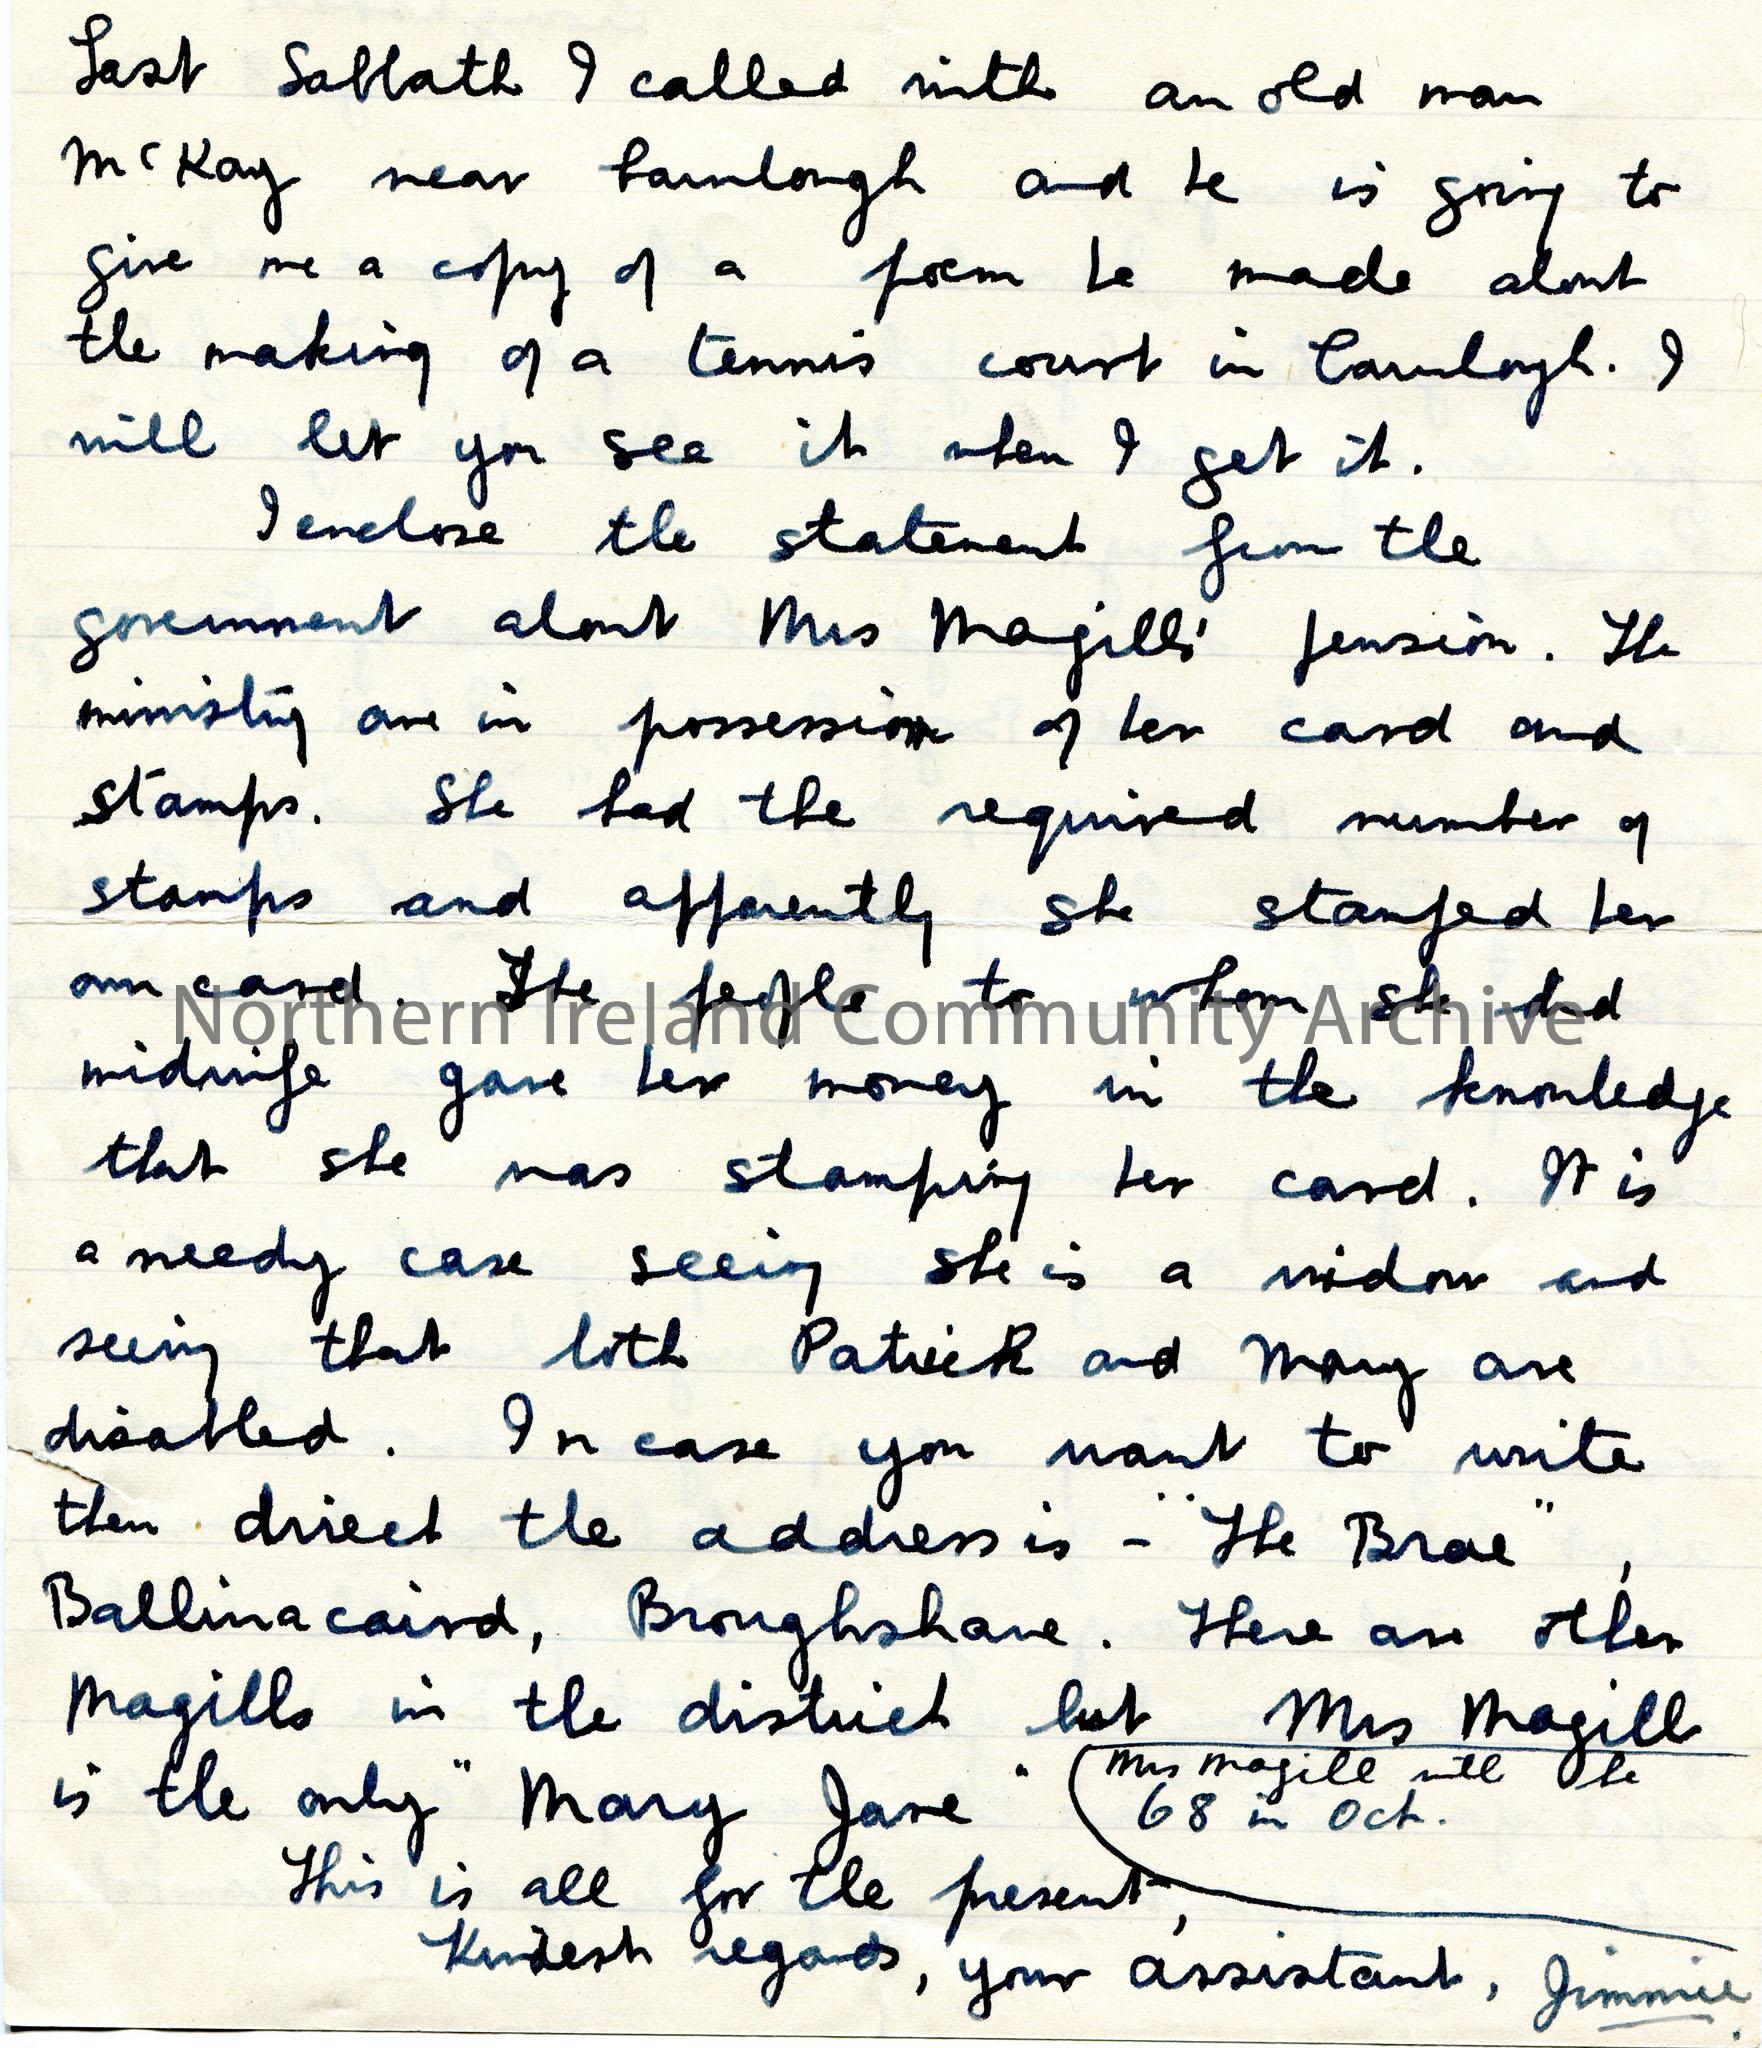 Last Sabbath I called with an old man
McKay near Carnlough and he is going to
give me a copy of a poem he made about
the making of a tennis court in Carnlough. I
will let you see it when I get it.
I enclose the statement from the
government about Mrs Magill's pension. The
ministry are in possession of her card and
stamps. She had the required number of
stamps and apparently she stamped her
own card. The people to whom she did
Northern Ireland Community Archive
midwife gave her money in the knowledge
that she was stamping her card. It is
a needy case seeing she is a widow and
seeing that both Patrick and Mary are
disabled. In case you want to write
then direct the address is - "The Brae",
Ballinacaird, Broughshane. There are other
Magills in the district but Mrs Magill
is the only "Mary Jane"
Mrs Magill will be
68 in Oct.
This is all for the present,
Kindest regards, your assistant, Jimmie.